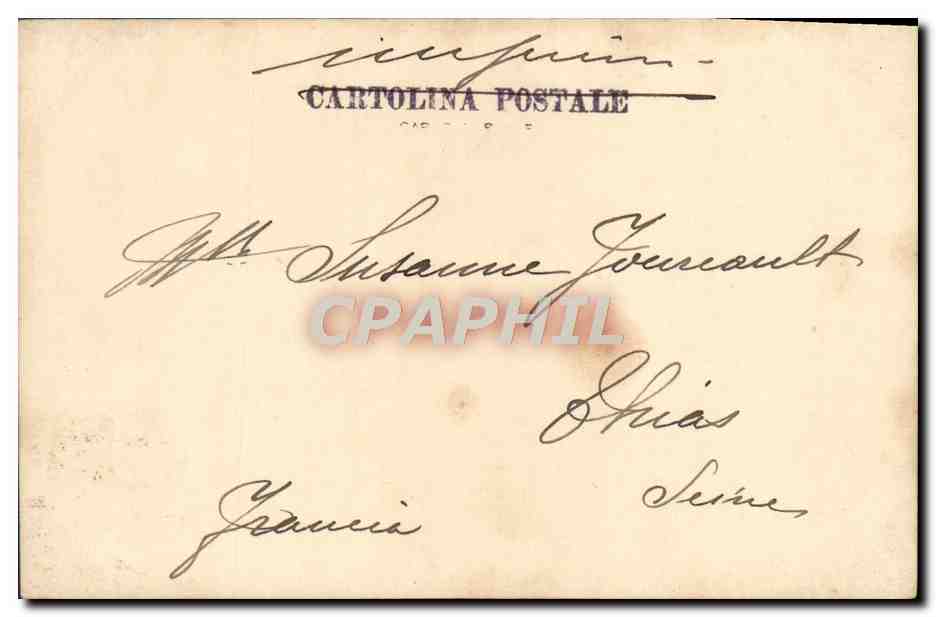 CARTOLINA POSTALE
Mlle Susanne
CPAPHIL
Thiais
Seine
Francia